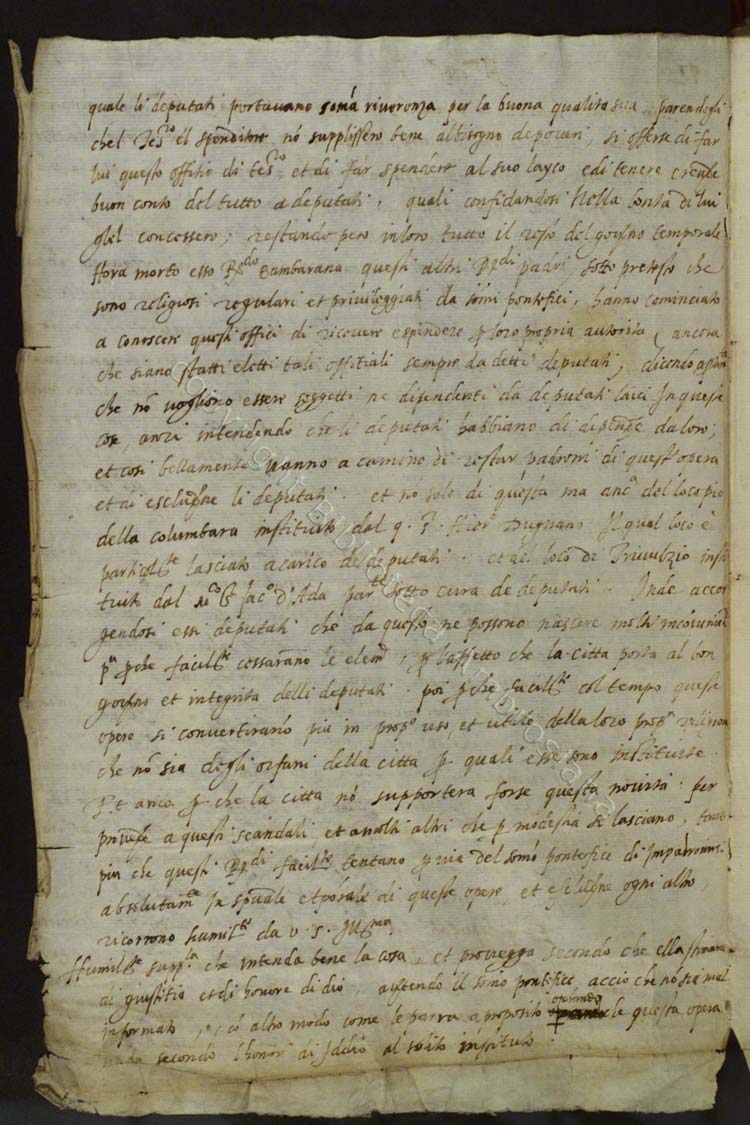 quale li deputati portavano somã riverenza per la buona qualita sua, parendogli
chel Tesro. el spenditore nó supplissero bene albisogno de poveri, si offerse di far
lui questo offitio di tesro. et di far spendere al suo layco edi tenere e rendere
buon conto del tutto a deputati, quali confidandosi Nella bontà di lui
glel concessero; restando pero inloro tutto il resto del governo temporale
Hora morto esso Rdo Gambarana questi altri Rdi padri sotto pretesto che
sono religiosi regulari et privileggiati da somi pontefici, hanno cominciato
a conoscere questi offici di ricevere espendere p loro propria autorita, ancora
che siano statti eletti tali offitiali sempre da detti deputati, dicendo
che nó vogliono essere soggetti ne dipendenti da deputati laici In queste
cose, anzi intendendo che li deputati habbiano di depende da loro;
et cosi bellamente vanno a camino di restar padroni di quest opera
et di escludere li deputati. et nó solo di questa ma anco del loco pio
della columbara instituito dal q. P. Hier Dugnano Il qual loco è
particolte lasciato acarico de deputati. et del loco di Triulzio insti
tuito dal Jaco d'Ada par sotto cura de deputati. Unde accor
gendosi essi deputati che da questo ne possono nascere molti inconvi
pa pche facilte cessarano le elem, p l'affetto che la citta porta al bon
governo et integrita delli deputati. poi pche facilte col tempo queste
opere si convertirano piu in propo uso, et utile della loro propa religion
che nó sia degli orfani della citta p quali esse sono instituite.
Et anco p che la citta nó supportera forse questa novita: per
provedere a questi scandali, et a molti altri che p modestia si lasciano, tanto
piu che questi Rdi facilte tentano p via del somo pontefice di Impadronirsi
absolutamte In spuale et temporale di queste opere, et escludere ogni altro,
ricorrono humilte da v. S. Illma
Humilte suppca che intenda bene la cosa, et provegga secondo che ella stimara
di giustitia et di honore di dio, avertendo il somo pontefice accio che nó sia mal
informato, o có altro modo come le parra a proposito che questa opera
vada secondo l honor di Iddio al solito instituto.